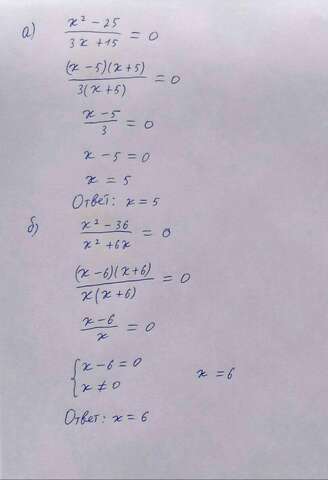 а) x² - 25 / 3x + 15 = 0
(x - 5)(x + 5) / 3(x + 5) = 0
x - 5 / 3 = 0
x - 5 = 0
x = 5
Ответ: x = 5
б) x² - 36 / x² + 6x = 0
(x - 6)(x + 6) / x(x + 6) = 0
x - 6 / x = 0
{ x - 6 = 0
x ≠ 0 x = 6
Ответ: x = 6